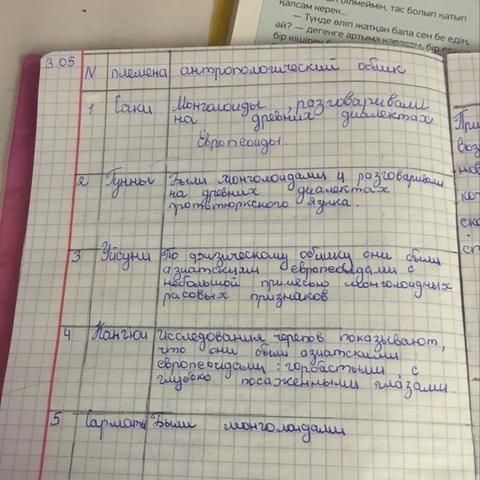 білмеймін, тас болып қатып
қалсам керек...
— Түнде өліп жатқан бала сен бе едің,
әй? — дегенге артыма қарасам, бір
бір кішірек
3.05
N племена антропологический облик
1 Саки Монголоиды, разговаривали
на древних диалектах
Европеоиды.
2 Гунны Были монголоидами и разговаривали
на древних диалектах
прототюркского языка.
3 Уйсуни По физическому облику они были
азиатскими европеоидами с
небольшой примесью монголоидных
расовых признаков
4 Кангюи Исследования черепов показывают,
что они были азиатскими
европеоидами: горбастыми, с
глубоко посаженными глазами.
5 Сарматы Были монголоидами